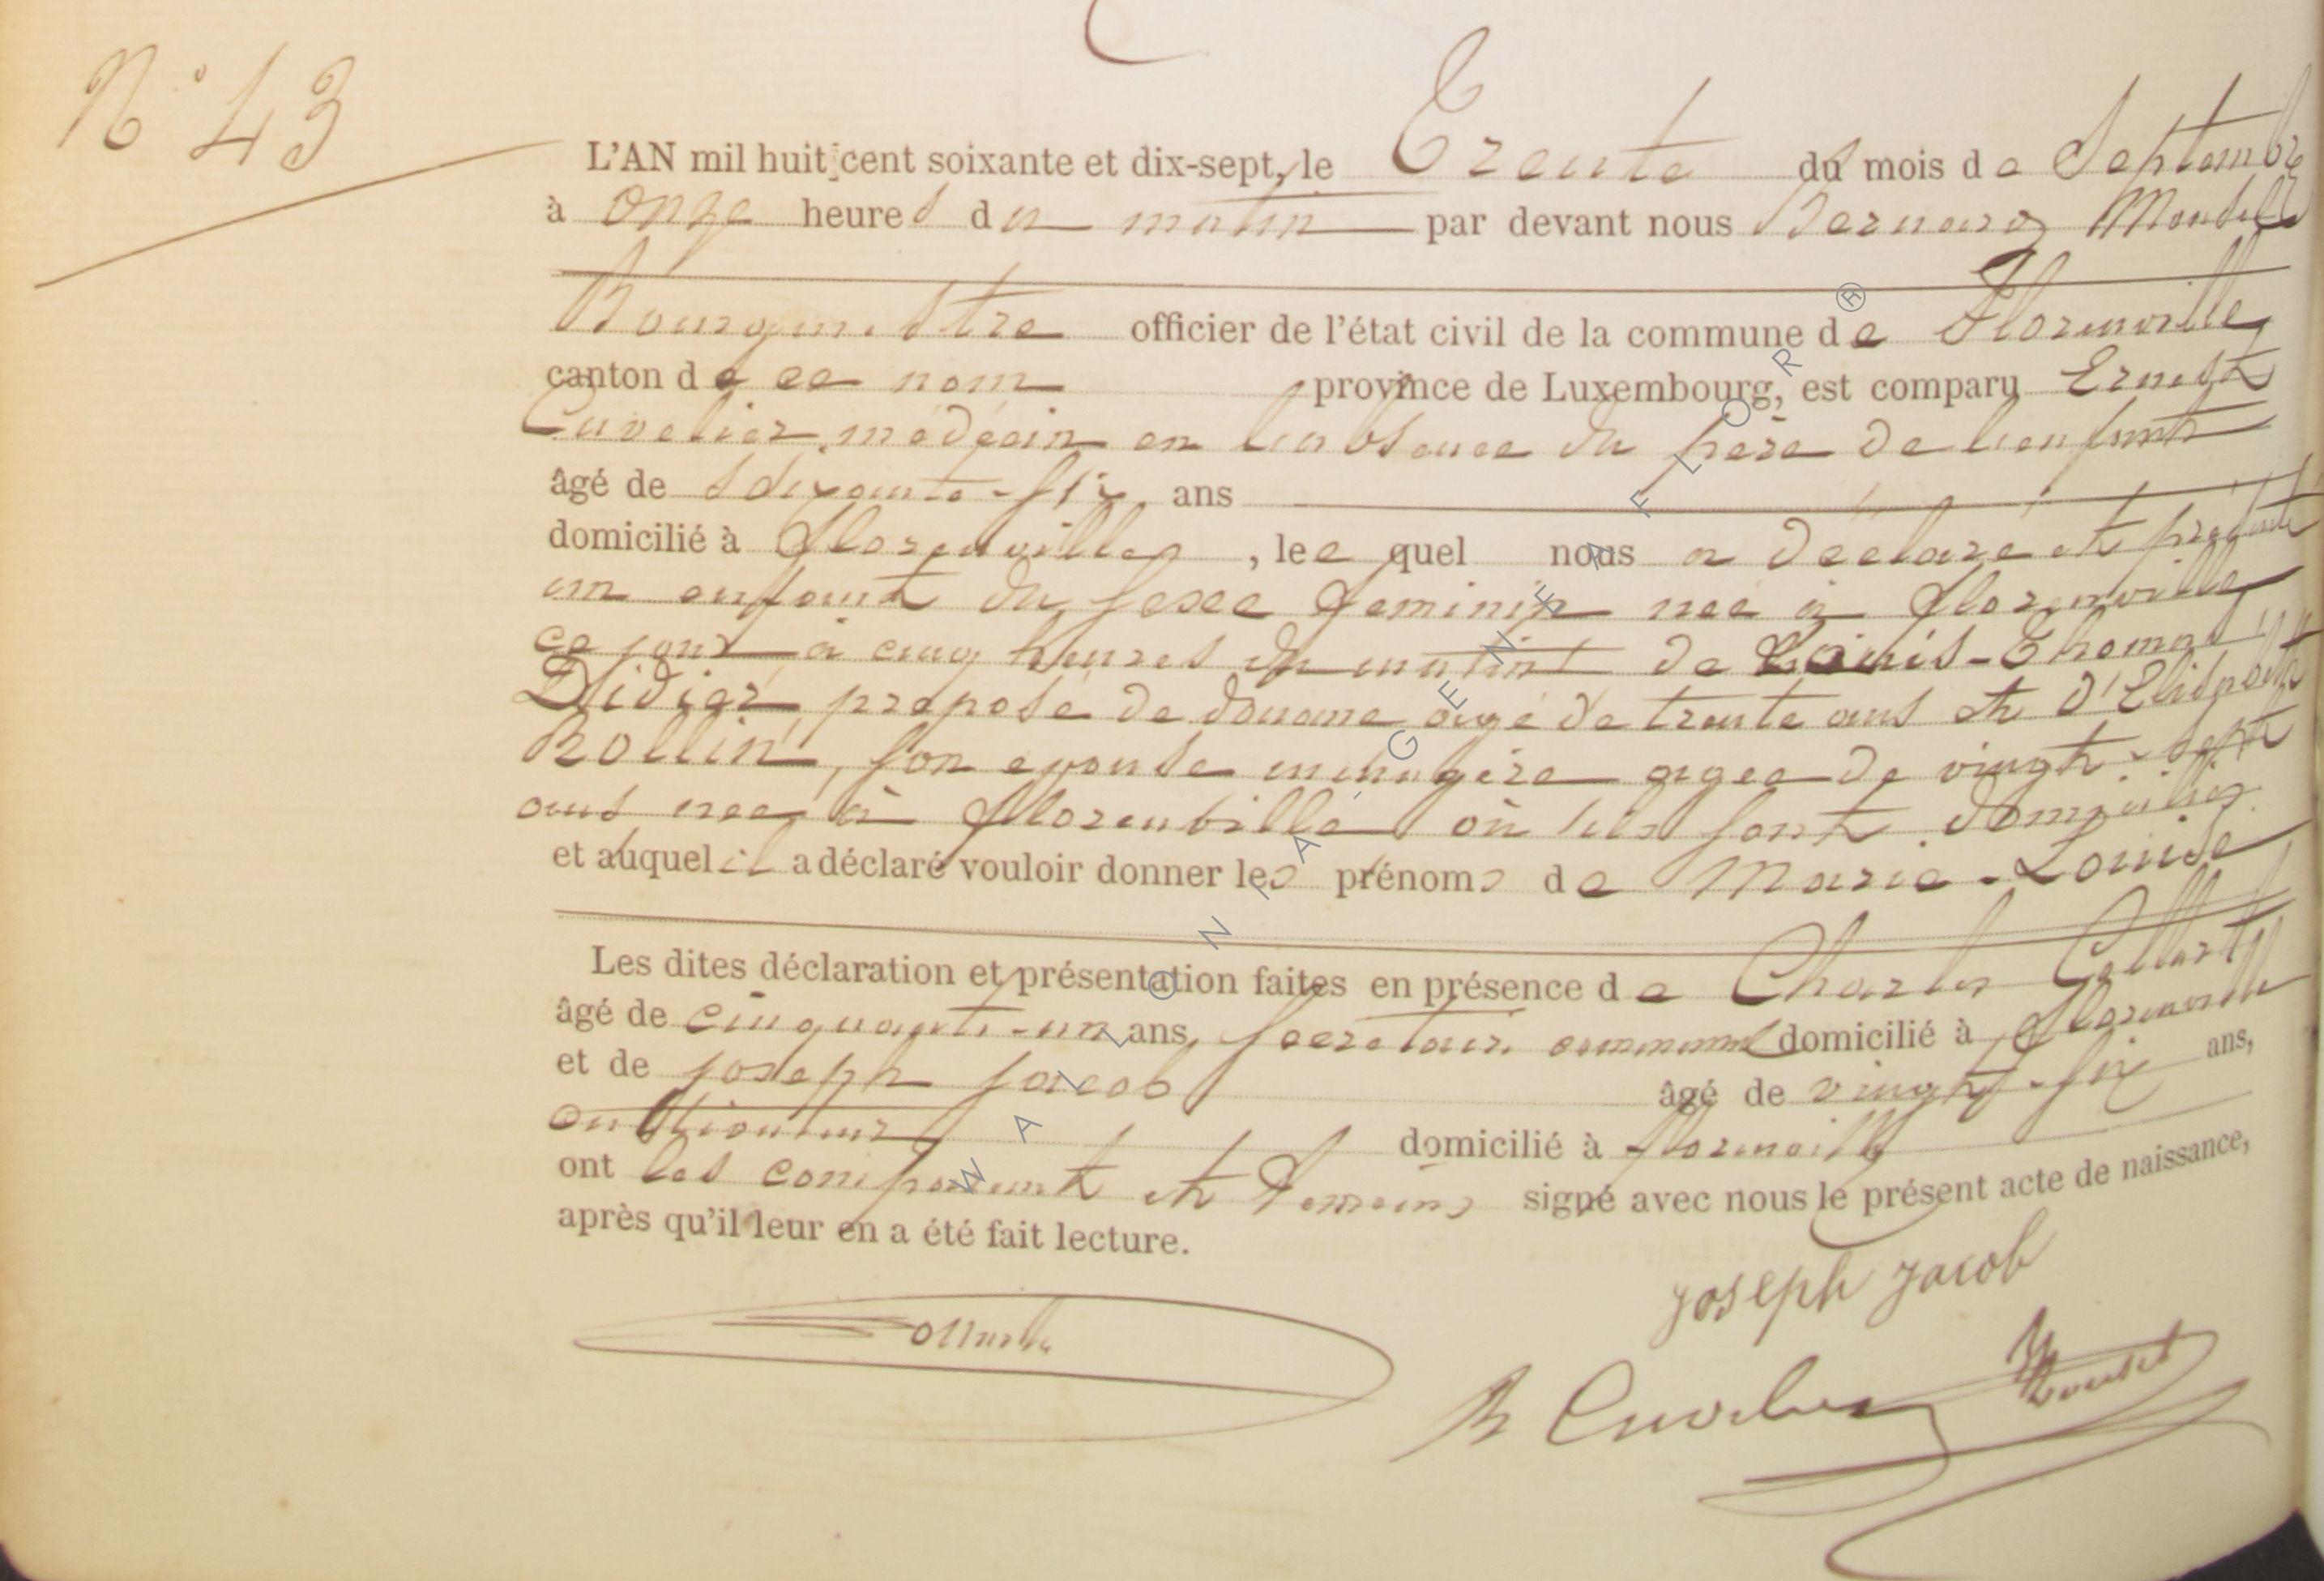 N° 43
L'AN mil huit cent soixante et dix-sept, le Trente du mois de Septembre
à onze heures du matin par devant nous Bernard
Bourgmestre officier de l'état civil de la commune de Florenville
canton de ce nom province de Luxembourg, est comparu Ernest
Cuvelier, médecin en l'absence du père de l'enfant
âgé de soixante-six ans
domicilié à Florenville, lee quel nous a déclaré et présenté
un enfant du sexe feminin née à Florenville
ce jour à cinq heures du matin de Louis-Thomas
Didier, préposé de douane agé de trente ans et d'Elisabeth
Rollin, son epouse menagère agee de vingt-sept
ans nee à Florenville où ils sont domiciliés
et auquel il a déclaré vouloir donner les prénoms de Marie-Louise
Les dites déclaration et présentation faites en présence de Charles Collart
âgé de cinquante-un ans, secretaire communal domicilié à Florenville
et de joseph jacob âgé de vingt-six ans,
domicilié à florenville
ont les comparant et temoins signé avec nous le présent acte de naissance,
après qu'il leur en a été fait lecture.
joseph jacob
Cuvelier
WALLONIA - GENEAFLOR ®